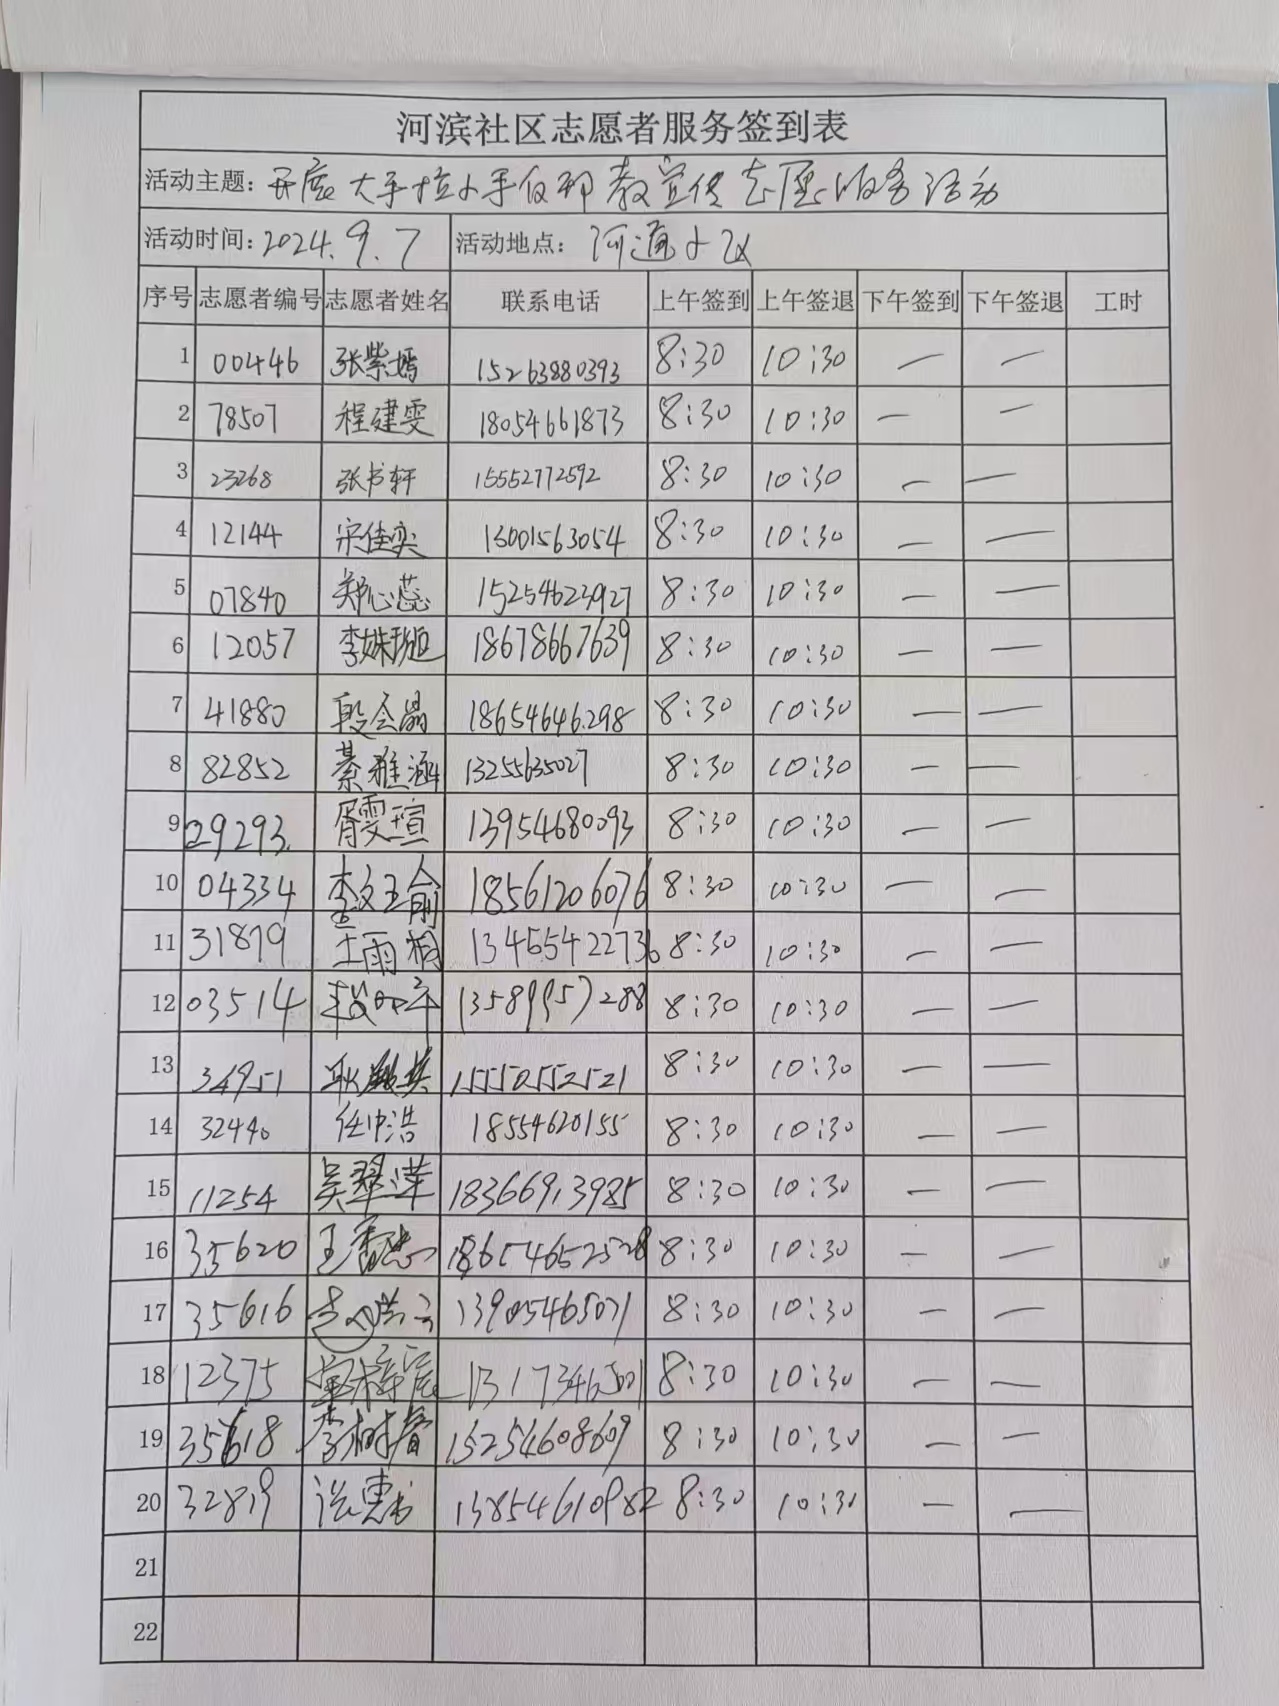 河滨社区志愿者服务签到表
活动主题：开展大手拉小手反邪教宣传志愿服务活动
活动时间：2024.9.7 活动地点：河通小区
序号 志愿者编号 志愿者姓名 联系电话 上午签到 上午签退 下午签到 下午签退 工时
1 00446 张紫嫣 15263880393 8:30 10:30 — —
2 78507 程建雯 18054661873 8:30 10:30 — —
3 23268 张书轩 15552772592 8:30 10:30 — —
4 12144 宋佳奕 13001563054 8:30 10:30 — —
5 07840 郑心蕊 15254623927 8:30 10:30 — —
6 12057 李姝珈 18678667639 8:30 10:30 — —
7 41880 段会晶 18654646298 8:30 10:30 — —
8 82852 綦雅涵 13255635027 8:30 10:30 — —
9 29293 胥雯瑄 13954680093 8:30 10:30 — —
10 04334 李文瑜 18561206076 8:30 10:30 — —
11 31879 王雨桐 13465422736 8:30 10:30 — —
12 03514 13589957288 8:30 10:30 — —
13 34951 耿 英 15550552521 8:30 10:30 — —
14 32440 任中浩 18554620155 8:30 10:30 — —
15 11254 吴翠萍 18366913985 8:30 10:30 — —
16 35620 王香 18654652528 8:30 10:30 — —
17 35616 13905465071 8:30 10:30 — —
18 12375 梓宸 8:30 10:30 — —
19 35618 李树春 15254608609 8:30 10:30 — —
20 32819 13854610982 8:30 10:30 — —
21
22